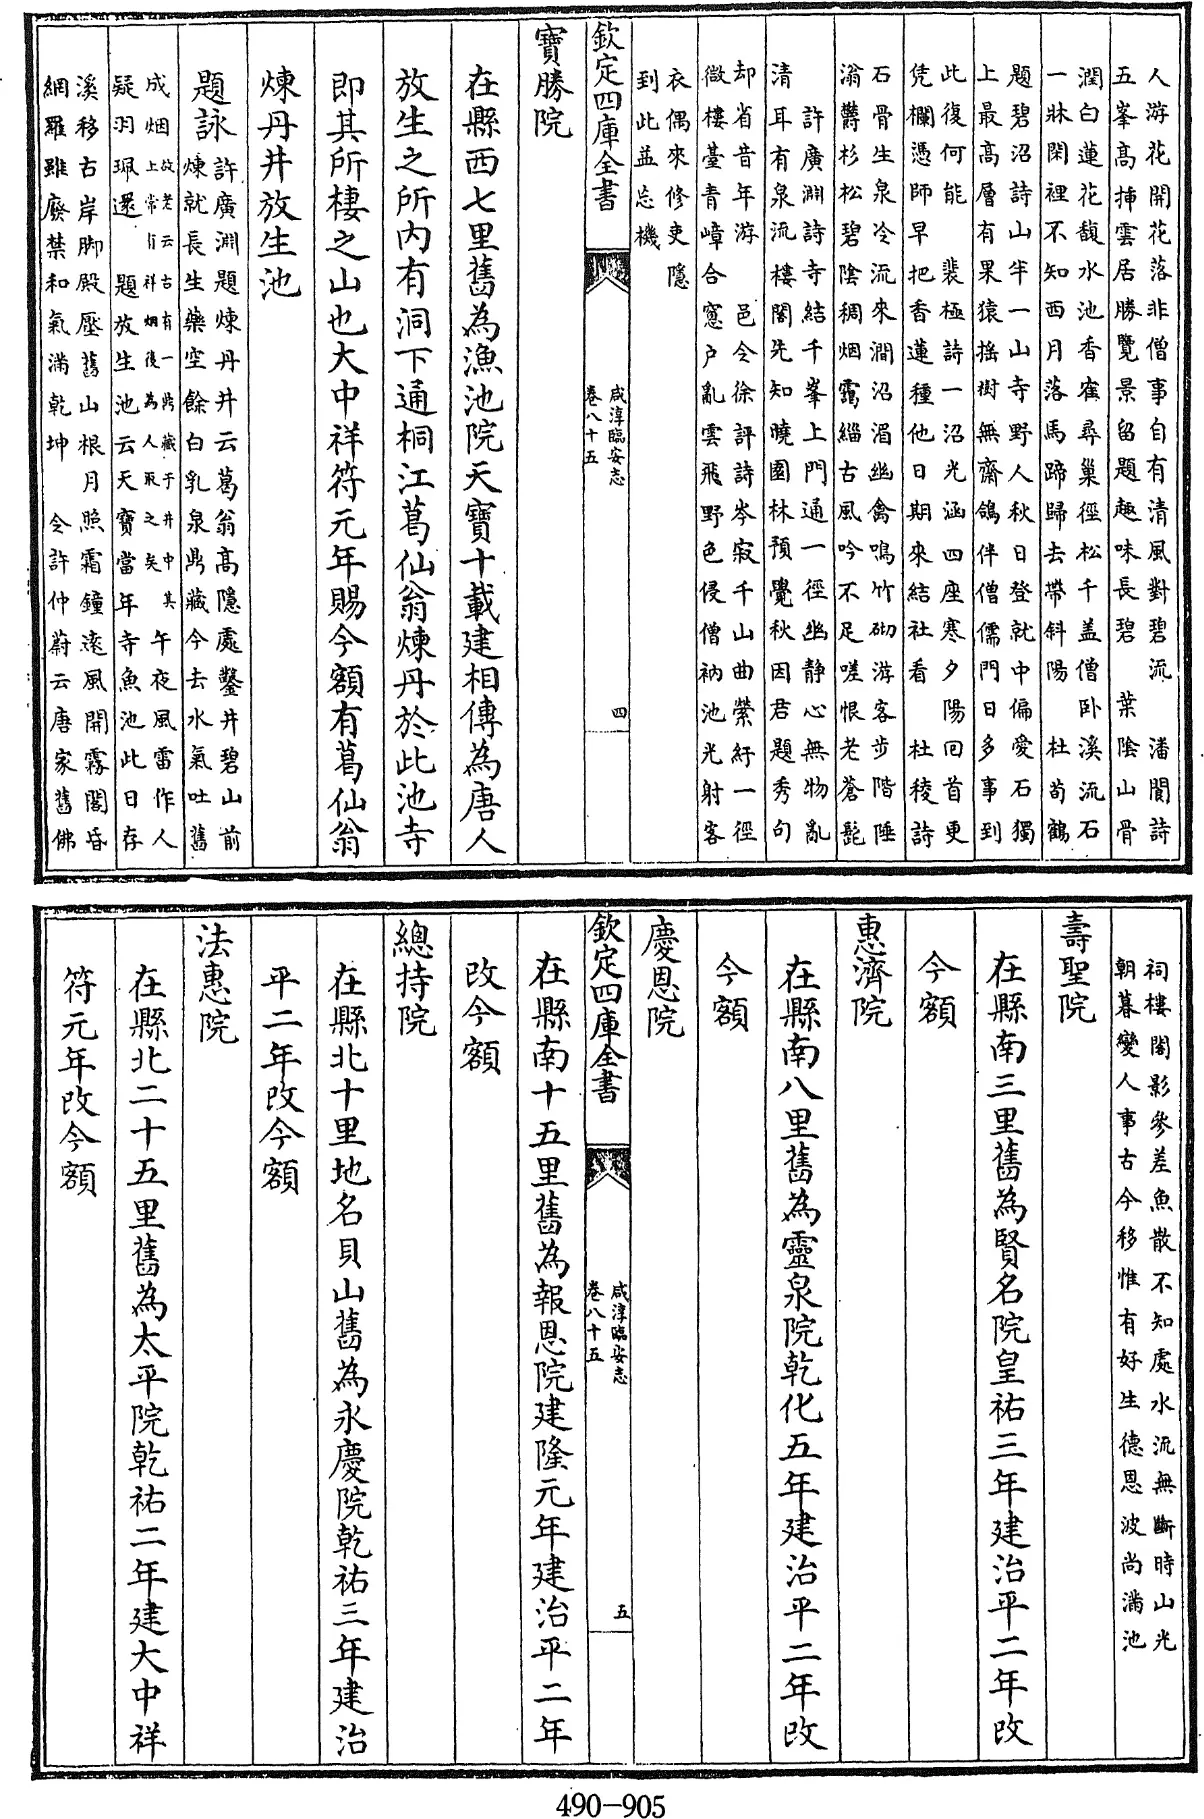 人游花開花落非僧事自有清風對碧流　潘閬詩
五峯髙揷雲居勝覽景留題趣味長碧　葉陰山骨
潤白蓮花馥水池香雀尋巢徑松千盖僧卧溪流石
一牀閑裡不知西月落馬蹄歸去帶斜陽　杜荀鶴
題碧沼詩山半一山寺野人秋日登就中偏愛石獨
上最髙層有果猿摇樹無齋鴿伴僧儒門日多事到
此復何能　裴極詩一沼光涵四座寒夕陽回首更
凭欄憑師早把香蓮種他日期來結社看　杜稜詩
石骨生泉冷流來澗沼湄幽禽鳴竹砌游客步階陲
滃欝杉松碧陰稠烟靄緇古風吟不足嗟恨老蒼髭
許廣淵詩寺結千峯上門通一徑幽静心無物亂
清耳有泉流樓閣先知曉園林預覺秋因君題秀句
却省昔年游　邑令徐評詩岑寂千山曲縈紆一徑
微樓臺青嶂合窻户亂雲飛野色侵僧衲池光射客
衣偶來修吏隱
到此益忘機
欽定四庫全書
咸淳臨安志
卷八十五
四
寶勝院
在縣西七里舊為漁池院天寶十載建相傳為唐人
放生之所内有洞下通桐江葛仙翁煉丹於此池寺
即其所棲之山也大中祥符元年賜今額有葛仙翁
煉丹井放生池
題詠
許廣淵題煉丹井云葛翁髙隱處鑿井碧山前
煉就長生藥空餘白乳泉鼎藏今去水氣吐舊
成烟
故老云古有一鼎藏于井中其
上常有祥烟後為人取之矣
午夜風雷作人
疑羽珮還　題放生池云天寶當年寺魚池此日存
溪移古岸脚殿壓舊山根月照霜鐘遠風開霧閣昏
網羅雖廢禁和氣滿乾坤　令許仲蔚云唐家舊佛
祠樓閣影參差魚散不知處水流無斷時山光
朝暮變人事古今移惟有好生德恩波尚滿池
壽聖院
在縣南三里舊為賢名院皇祐三年建治平二年改
今額
惠濟院
在縣南八里舊為靈泉院乾化五年建治平二年改
今額
慶恩院
欽定四庫全書
咸淳臨安志
卷八十五
五
在縣南十五里舊為報恩院建隆元年建治平二年
改今額
總持院
在縣北十里地名貝山舊為永慶院乾祐三年建治
平二年改今額
法惠院
在縣北二十五里舊為太平院乾祐二年建大中祥
符元年改今額
490-905